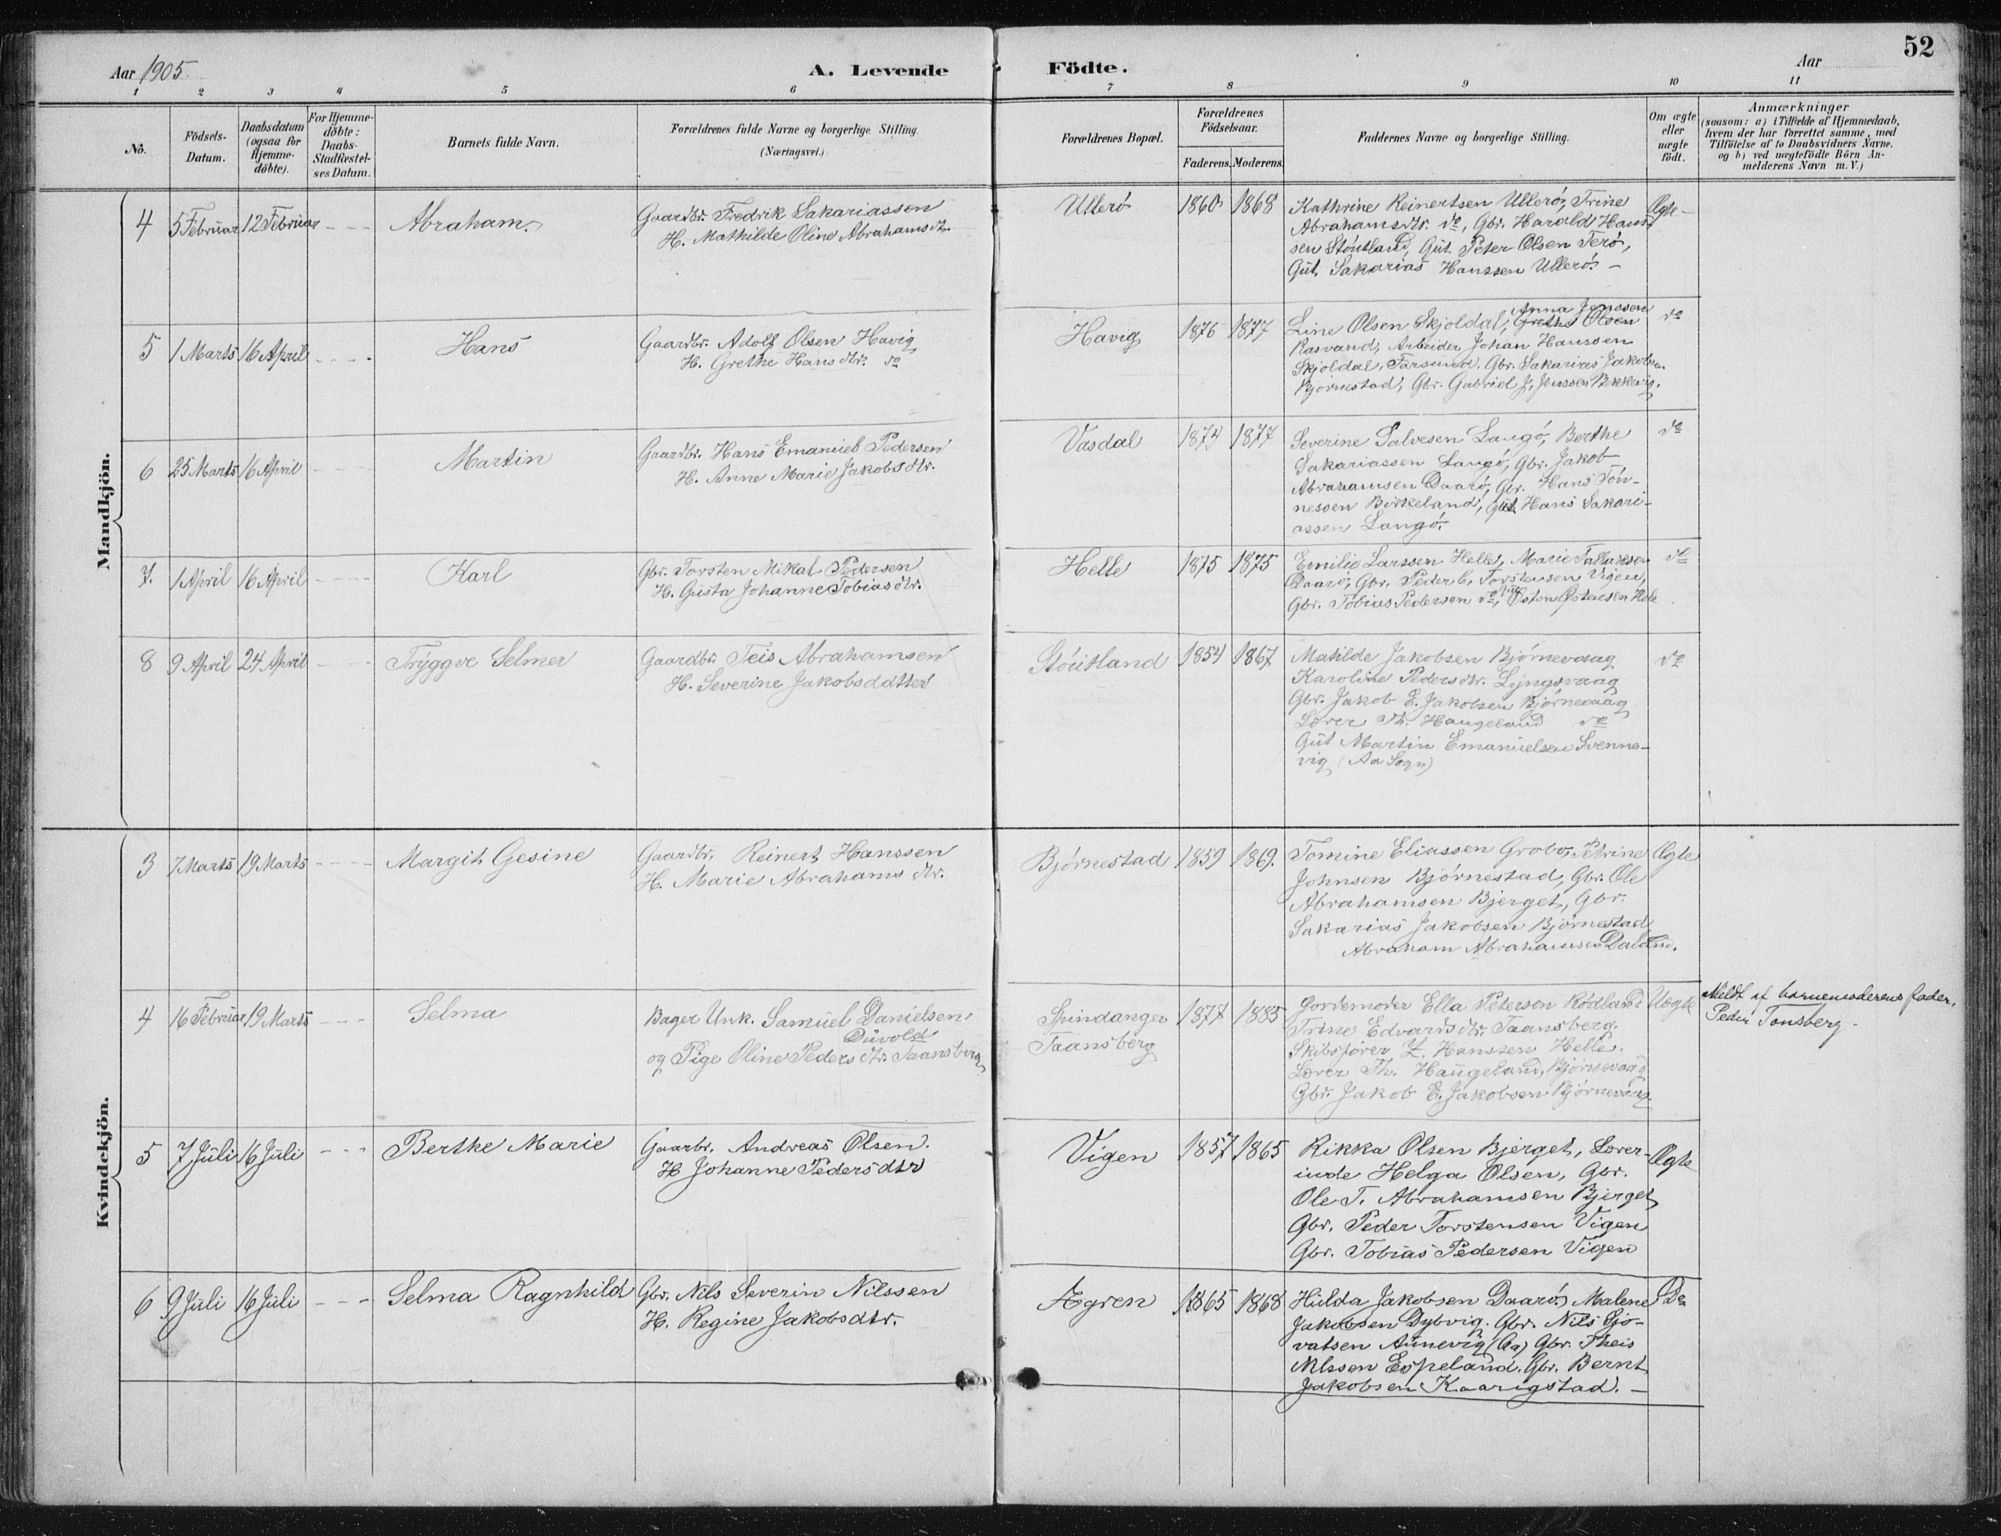 52
Aar 1905
A. Levende Födte.
Aar
1 2 3 4 5 6 7 8 9 10 11
No.
Födsels-Datum.
Daabsdatum (ogsaa for Hjemme-döbte).
For Hjemme-döbte: Daabs-Stadfæstel-ses Datum.
Barnets fulde Navn.
Forældrenes fulde Navne og borgerlige Stilling.
(Næringsvei.)
Forældrenes Bopæl.
Forældrenes Födselsaar.
Faderens. Moderens.
Faddernes Navne og borgerlige Stilling.
Om ægte eller uægte födt.
Anmærkninger
(saasom: a) i Tilfælde af Hjemmedaab,
hvem der har forrettet samme, med
Tilföielse af to Daabsvidners Navne,
og b) ved uægtefödte Börn An-
melderens Navn m. V.)
Mandkjön.
4 5 Februar 12 Februar - - - Abraham.
Gaardbr. Fredrik Sakariassen
H. Mathilde Oline Abrahamsdtr.
Ullerö 1860 1868
Kathrine Reinertsen Ullerö, Trine
Abrahamsdtr. do, Gbr. Harald Hans-
sen Stöutland, Gut Peter Olsen Terö,
Gut Sakarias Hanssen Ullerö. -
Ægte -
5 1 Marts 16 April - - - Hans
Gaardbr. Adolf Olsen Havig
H. Grethe Hansdtr. do
Havig 1876 1877
Anna Jenssen
Line Olsen Skjoldal, Grethe Olsen
Rasvand, Arbeider Johan Hanssen
Skjoldal, Farsund, Gbr. Sakarias Jakobsen
Björnestad, Gbr. Gabriel J. Jenssen Bekkevig.
do
6 25 Marts 16 April - - - Martin
Gaardbr. Hans Emanuel Pedersen
H. Anne Marie Jakobsdtr.
Vasdal 1874 1877
Severine Salvesen Langö, Berthe
Sakariassen Langö, Gbr. Jakob
Abrahamsen Daarö, Gbr. Hans Tön-
nessen Birkeland, Gut Hans Sakari-
assen Langö.
do
7. 1 April 16 April - - - Karl
Gbr. Torsten Mikal Pedersen
H. Gusta Johanne Tobiasdtr.
Helle 1875 1875
Emilie Larssen Helle, Marie Tallaksen
Daarö, Gbr. Peder C. Torstensen Vigen,
Gbr. Tobias Pedersen do, Östen Östensen Helle
do
8 9 April 24 April - - - Tryggve Selmer
Gaardbr. Teis Abrahamsen
H. Severine Jakobsdatter
Stöutland 1854 1867
Matilde Jakobsen Björnevaag
Karoline Pedersdtr. Lyngsvaag
Gbr. Jakob E. Jakobsen Björnevaag
Lærer Th. Haugeland do
Gut Martin Emanuelsen Svenne-
vig (Aa Sogn)
do
Kvindekjön.
3 7 Marts 19 Marts - - - Margit Gesine
Gaardbr. Reinert Hanssen
H. Marie Abrahamsdtr.
Björnestad 1859 1869.
Tomine Eliassen Grobo, Petrine
Johnsen Björnestad, Gbr. Ole
Abrahamsen Bjerget, Gbr.
Sakarias Jakobsen Björnestad
Abraham Abrahamsen
Ægte
4 16 Februar 19 Marts - - - Selma
Bager Unk. Samuel Danielsen
Düvold
og Pige Oline Pedersdtr. Taansberg
Spindanger
Taansberg
1877 1885
Gordemoder Ella Petersen Rödland
Trine Edvardsdtr. Taansberg.
Skibsförer Z. Hanssen Helle.
Lærer Th. Haugeland, Björnevaag
Gbr. Jakob E. Jakobsen Björnevaag.
Uægte
Meldt af barnemoderens fader.
Peder Tonsberg.
5 7 Juli 16 Juli - - - Berthe Marie
Gaarbr. Andreas Olsen.
H Johanne Pedersdtr
Vigen 1857 1865
Rikka Olsen Bjerget, Lærer-
inde Helga Olsen, Gbr.
Ole T. Abrahamsen Bjerget
Gbr. Peder Torstensen Vigen
Gbr. Tobias Pedersen Vigen
Ægte
6 9 Juli 16 Juli - - - Selma Ragnhild
Gbr. Nils Severin Nilssen
H. Regine Jakobsdtr.
Agren 1865 1868
Hulda Jakobsen Daarö, Malene
Jakobsen Dybvig. Gbr. Nils Sjö-
vatsen Aunevig (Aa) Gbr. Theis
Nilssen Espeland. Gbr. Bernt
Jakobsen Kaarigstad. -
Do